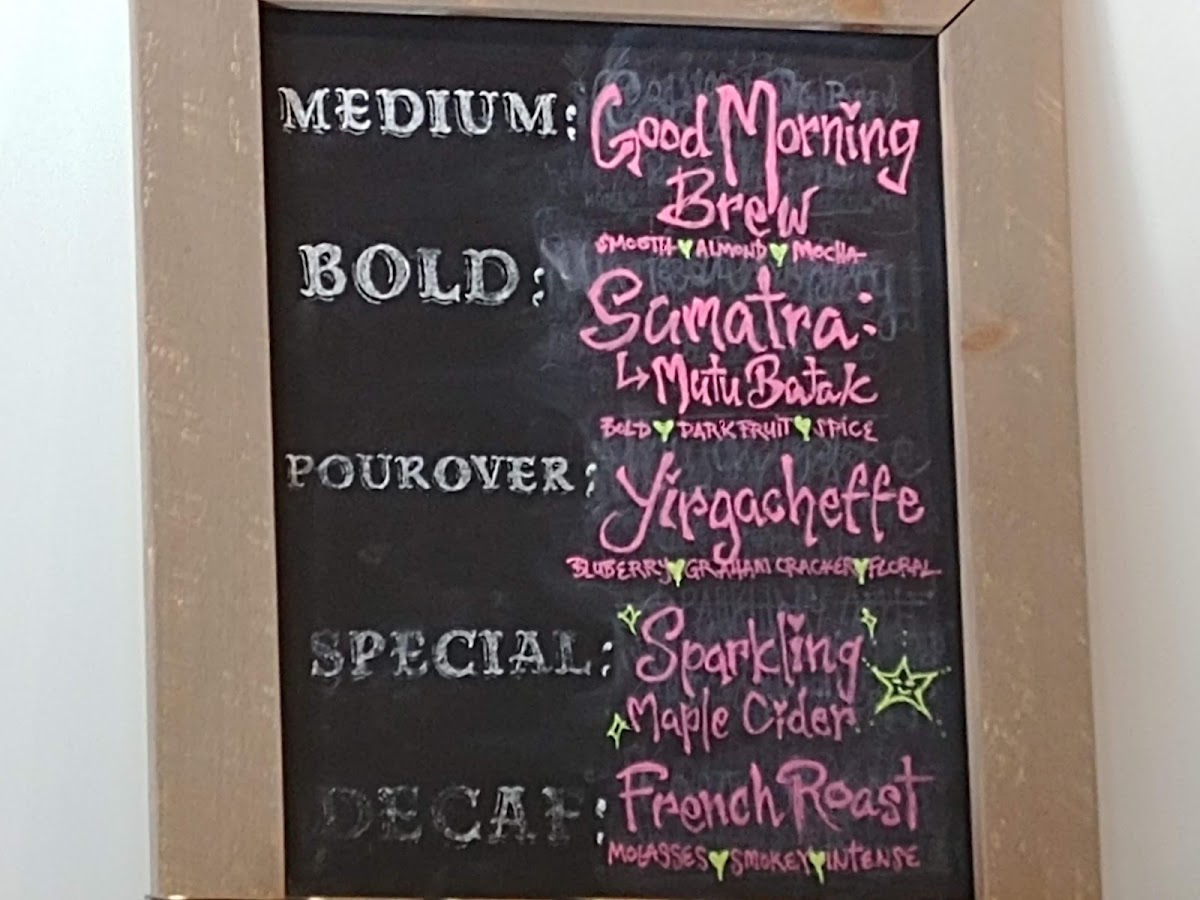 MEDIUM: Good Morning
Brew
SMOOTH ALMOND MOCHA
BOLD: Sumatra:
↳ Mutu Batak
BOLD DARK FRUIT SPICE
POUROVER: Yirgacheffe
BLUBERRY GRAHAM CRACKER FLORAL
SPECIAL: Sparkling
Maple Cider
DECAF: French Roast
MOLASSES SMOKEY INTENSE